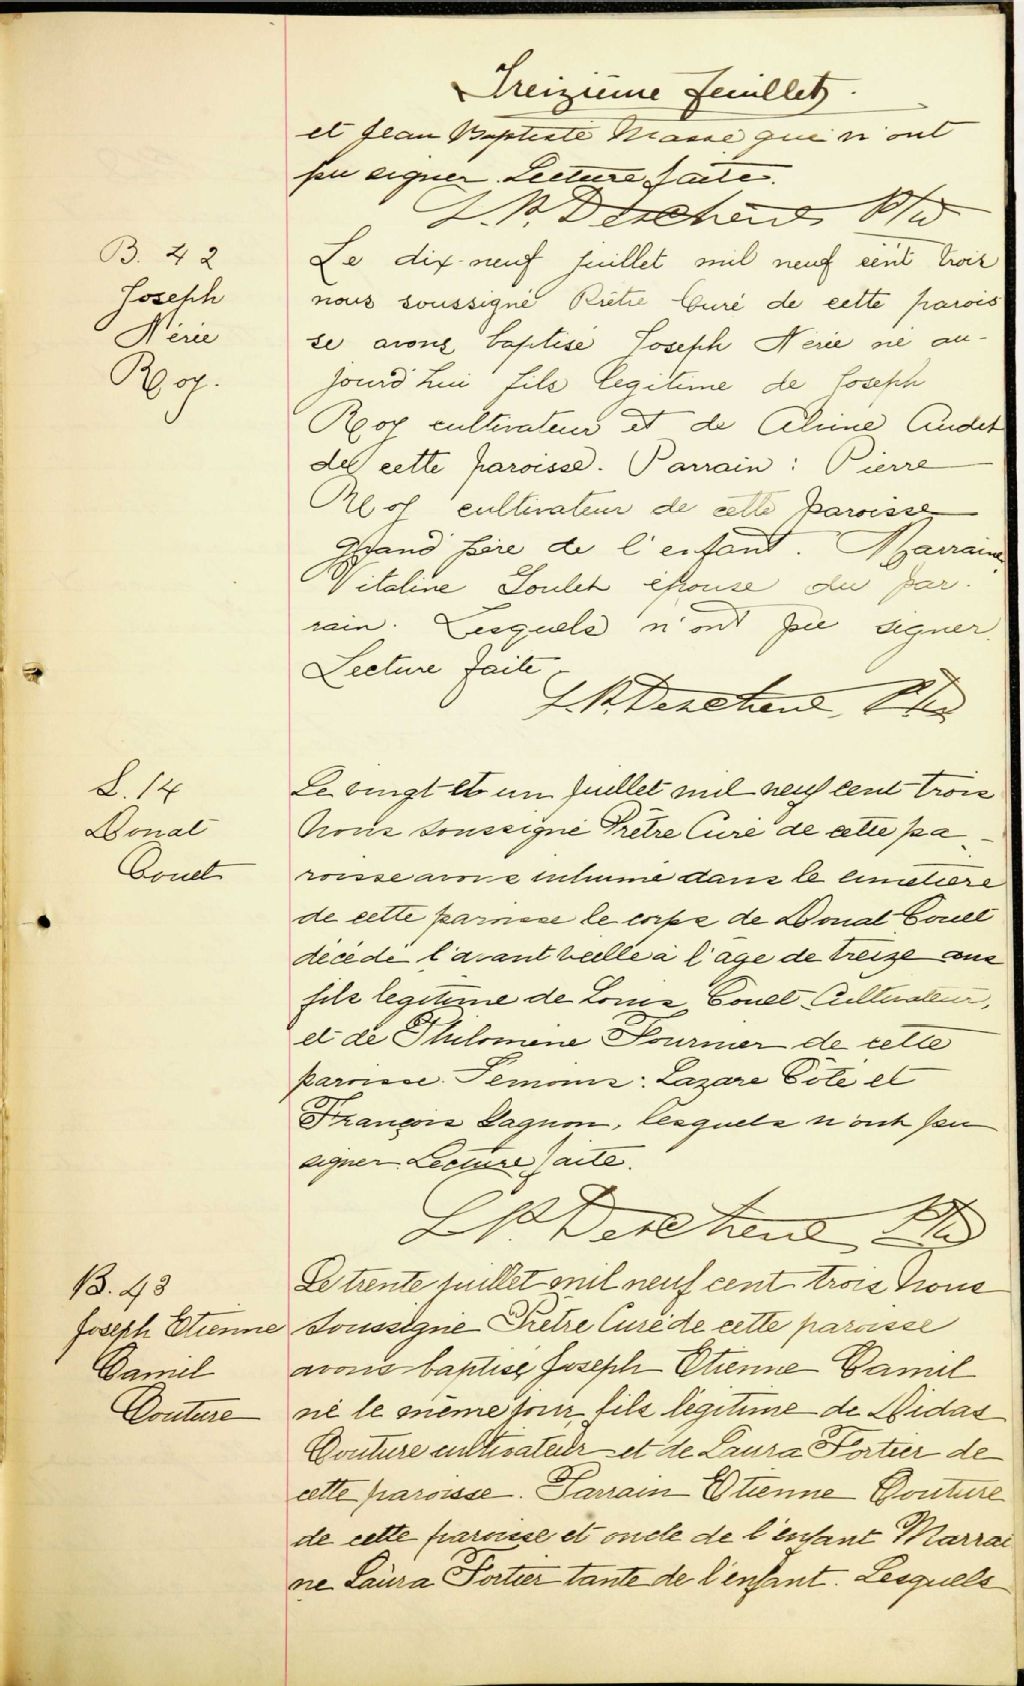 Treizième feuillet.
et Jean Baptiste Massé qui n'ont
pu signer. Lecture faite.
L. P. Deschêne Ptre
B. 42
Joseph
Nérée
Roy.
Le dix-neuf juillet mil neuf cent trois
nous soussigné Prêtre Curé de cette parois
se avons baptisé Joseph Nérée né au-
jourd'hui fils légitime de Joseph
Roy cultivateur et de Alvine Audet
de cette paroisse. Parrain : Pierre
Roy cultivateur de cette paroisse
grand père de l'enfant. Marraine
Vitaline Goulet épouse du par-
rain. Lesquels n'ont pu signer.
Lecture faite.
L. P. Deschene, Ptre
S. 14
Donat
Couet
Le vingt et un juillet mil neuf cent trois
Nous soussigné Prêtre Curé de cette pa-
roisse avons inhumé dans le cimetière
de cette paroisse le corps de Donat Couet
décédé l'avant veille à l'âge de treize ans
fils légitime de Louis Couet Cultivateur,
et de Philomène Fournier de cette
paroisse. Témoins : Lazare Côté et
François Gagnon, lesquels n'ont pu
signer. Lecture faite.
L. P. Deschene, Ptre
B. 43
Joseph Etienne
Camil
Couture
Le trente juillet mil neuf cent trois Nous
soussigné Prêtre Curé de cette paroisse
avons baptisé Joseph Etienne Camil
né le même jour, fils légitime de Didas
Couture cultivateur et de Laura Fortier de
cette paroisse. Parrain Etienne Couture
de cette paroisse et oncle de l'enfant Marrai
ne Laura Fortier tante de l'enfant. Lesquels